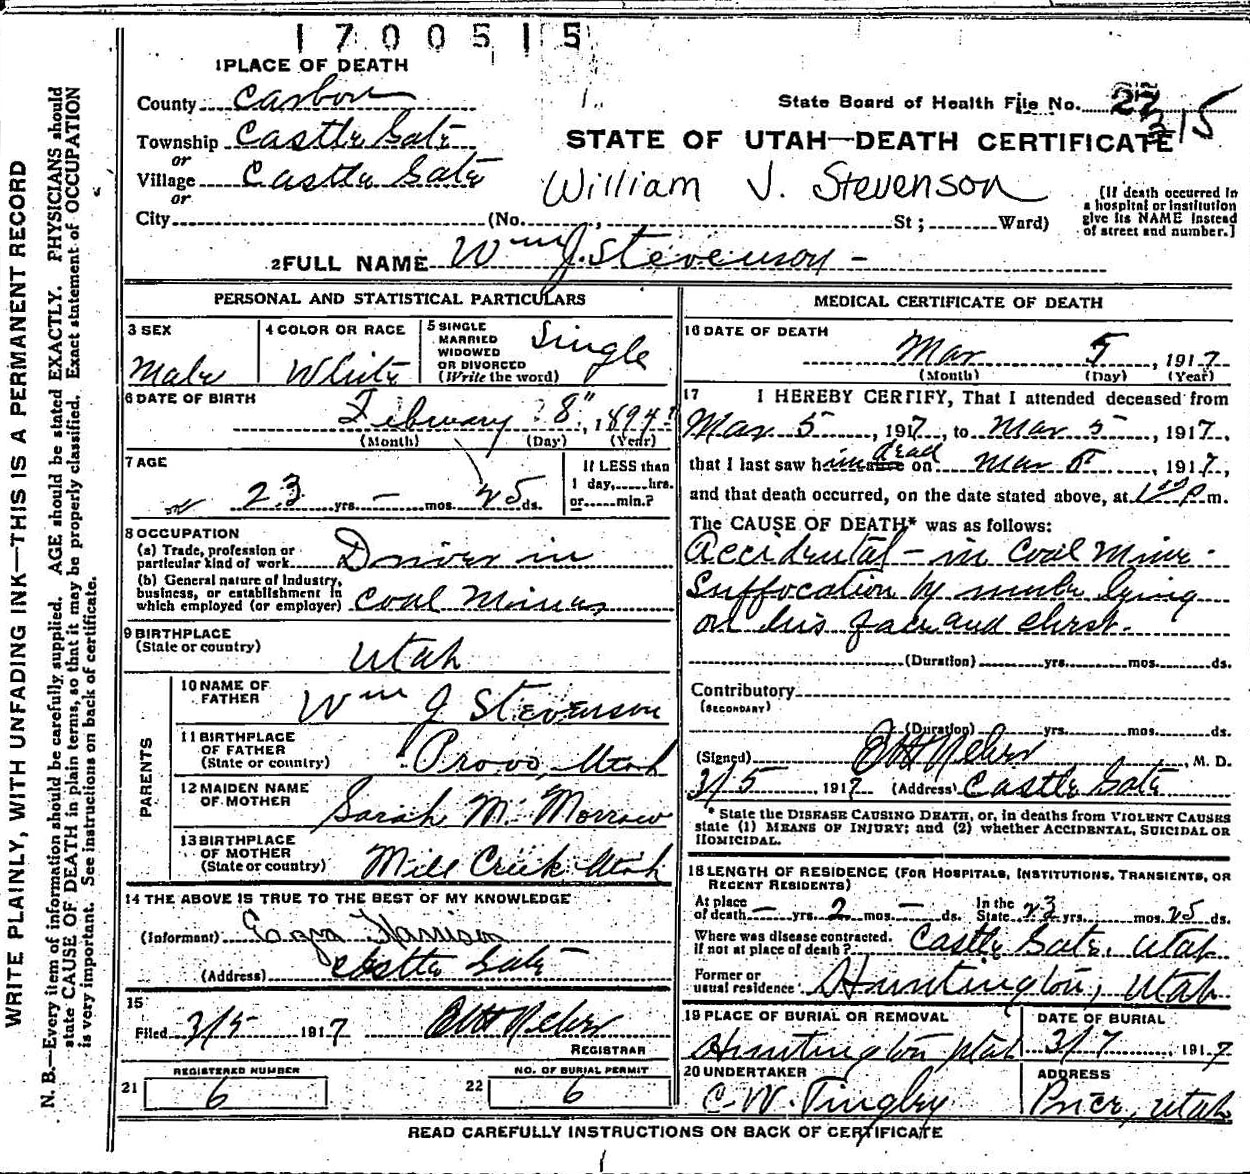 1700515
1 PLACE OF DEATH
County Carbon
State Board of Health File No. 27
315
Township Castle Gate
STATE OF UTAH—DEATH CERTIFICATE
or
Village Castle Gate
William J. Stevenson
or
City (No. , St ; Ward)
[If death occurred in
a hospital or institution
give its NAME instead
of street and number.]
2 FULL NAME Wm J. Stevenson -
PERSONAL AND STATISTICAL PARTICULARS
3 SEX
Male
4 COLOR OR RACE
White
5 SINGLE
MARRIED
WIDOWED
OR DIVORCED
(Write the word)
Single
6 DATE OF BIRTH
February 8", 1894
(Month) (Day) (Year)
7 AGE
23 yrs. - mos. 25 ds.
If LESS than
1 day,......hrs.
or......min.?
8 OCCUPATION
(a) Trade, profession or
particular kind of work Driver in
(b) General nature of Industry,
business, or establishment in
which employed (or employer) Coal Mines
9 BIRTHPLACE
(State or country)
Utah
PARENTS
10 NAME OF
FATHER
Wm J Stevenson
11 BIRTHPLACE
OF FATHER
(State or country)
Provo, Utah
12 MAIDEN NAME
OF MOTHER
Sarah M. Morrow
13 BIRTHPLACE
OF MOTHER
(State or country)
Mill Creek Utah
14 THE ABOVE IS TRUE TO THE BEST OF MY KNOWLEDGE
(Informant) Ezra Harrison
(Address) Castle Gate
15
Filed 3/5 1917
REGISTRAR
REGISTERED NUMBER
21 6
NO. OF BURIAL PERMIT
22 6
MEDICAL CERTIFICATE OF DEATH
16 DATE OF DEATH
Mar 5, 1917
(Month) (Day) (Year)
17 I HEREBY CERTIFY, That I attended deceased from
Mar 5, 1917, to Mar 5, 1917,
that I last saw him dead on Mar 5, 1917,
and that death occurred, on the date stated above, at 1 00 P m.
The CAUSE OF DEATH* was as follows:
Accidental - in Coal Mine -
Suffocation by mule lying
on his face and chest.
(Duration) yrs. mos. ds.
Contributory
(SECONDARY)
(Duration) yrs. mos. ds.
(Signed) , M. D.
3/5 1917 (Address) Castle Gate
* State the DISEASE CAUSING DEATH, or, in deaths from VIOLENT CAUSES
state (1) MEANS OF INJURY; and (2) whether ACCIDENTAL, SUICIDAL OR
HOMICIDAL.
18 LENGTH OF RESIDENCE (FOR HOSPITALS, INSTITUTIONS, TRANSIENTS, OR
RECENT RESIDENTS)
At place
of death — yrs. 2 mos. — ds.
In the
State 23 yrs. mos. 25 ds.
Where was disease contracted.
if not at place of death? Castle Gate, Utah
Former or
usual residence Huntington, Utah
19 PLACE OF BURIAL OR REMOVAL
Huntington Utah
DATE OF BURIAL
3/7, 1917
20 UNDERTAKER
C. W. Tingley
ADDRESS
Price, Utah
READ CAREFULLY INSTRUCTIONS ON BACK OF CERTIFICATE
WRITE PLAINLY, WITH UNFADING INK—THIS IS A PERMANENT RECORD
N. B.—Every item of information should be carefully supplied. AGE should be stated EXACTLY. PHYSICIANS should
state CAUSE OF DEATH in plain terms, so that it may be properly classified. Exact statement of OCCUPATION
is very important. See instructions on back of certificate.